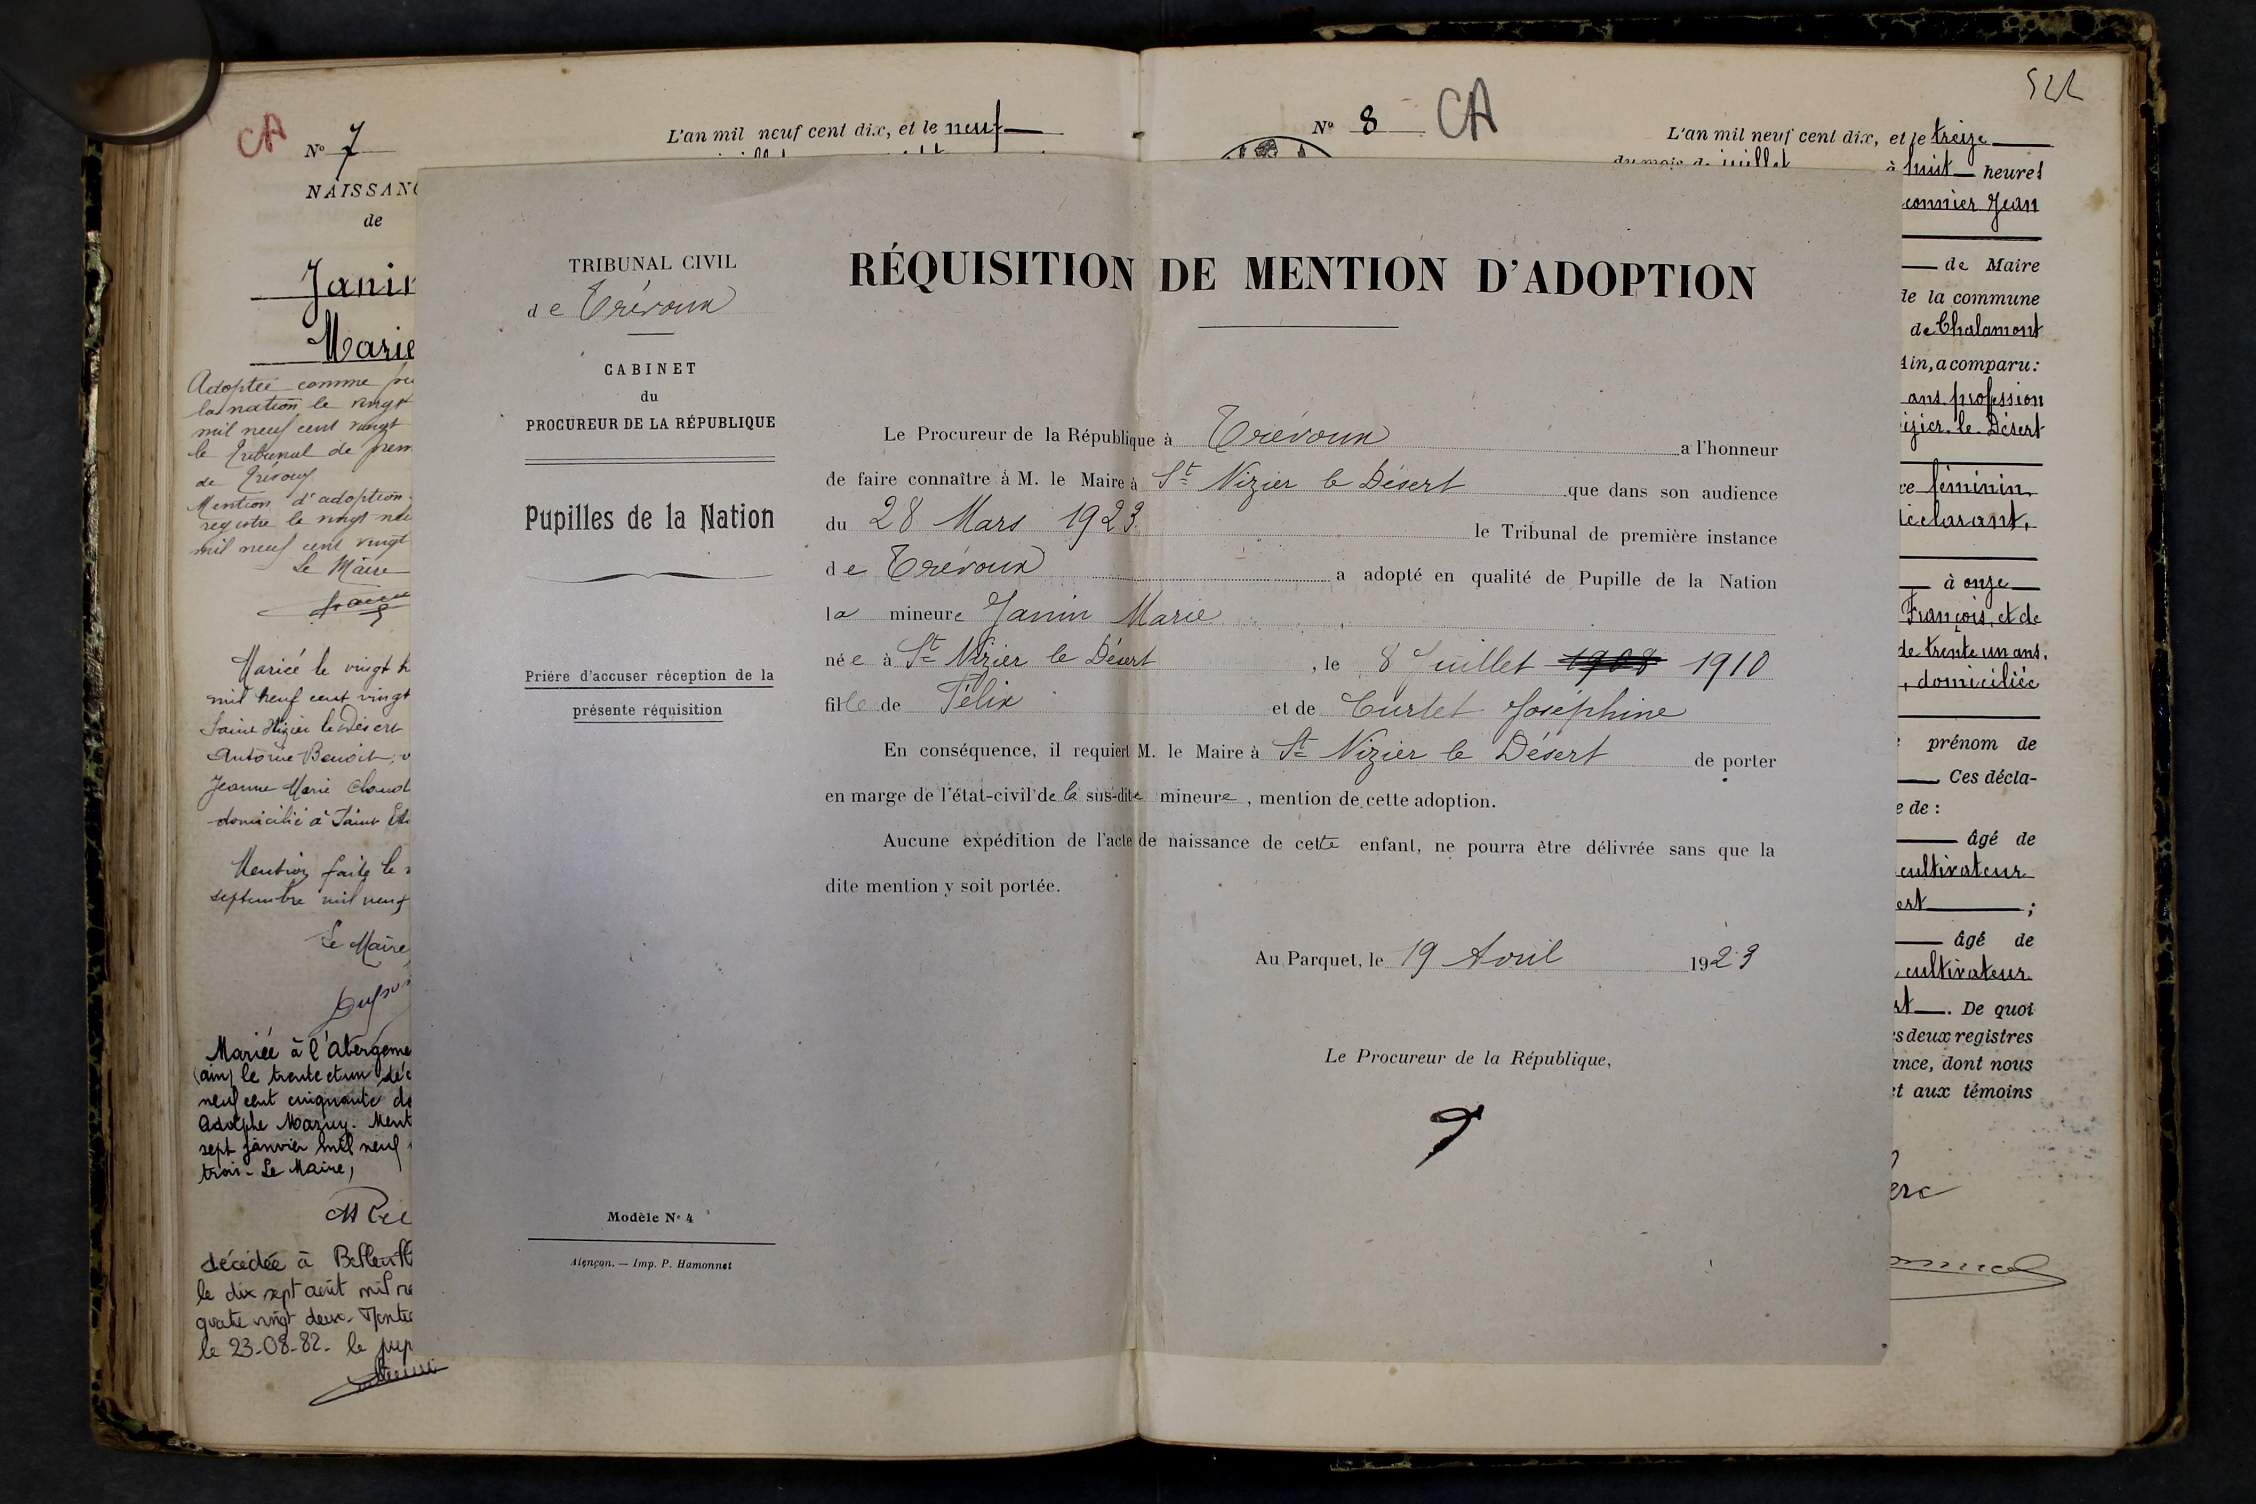 CA
Nº 7
L'an mil neuf cent dix, et le neuf
NAISSANC
de
Janin
Marie
Adoptée comme pu
la nation le vingt
mil neuf cent vingt
le Tribunal de prem
de Trévoux
Mention d'adoption
registre le vingt neu
mil neuf cent vingt
Le Maire
Marié le vingt h
mil neuf cent vingt
Saint Nizier le Désert
Antoine Benoit, v
Jeanne Marie Claud
domicilié à Saint
Mention faite le
septembre mil neuf
Le Maire
Mariée à l'Abergeme
(ain) le trente et un déc
neuf cent cinquante de
Adolphe Mazuy. Ment
sept janvier mil neuf
trois. Le Maire,
décédée à Bellevill
le dix sept août mil ne
quatre vingt deux. Mentio
le 23-08-82. le
TRIBUNAL CIVIL
de Trévoux
CABINET
du
PROCUREUR DE LA RÉPUBLIQUE
Pupilles de la Nation
Prière d'accuser réception de la
présente réquisition
Modèle Nº 4
Alençon. — Imp. P. Hamonnet
RÉQUISITION DE MENTION D'ADOPTION
Le Procureur de la République à Trévoux a l'honneur
de faire connaître à M. le Maire à St Nizier le Désert que dans son audience
du 28 Mars 1923 le Tribunal de première instance
de Trévoux a adopté en qualité de Pupille de la Nation
la mineure Janin Marie
née à St Nizier le Désert, le 8 Juillet 1908 1910
fille de Félix et de Curtet Joséphine
En conséquence, il requiert M. le Maire à St Nizier le Désert de porter
en marge de l'état-civil de la sus-dite mineure, mention de cette adoption.
Aucune expédition de l'acte de naissance de cette enfant, ne pourra être délivrée sans que la
dite mention y soit portée.
Au Parquet, le 19 Avril 1923
Le Procureur de la République,
Nº 8 CA
L'an mil neuf cent dix, et le treize
du mois de juillet à huit heures
connier Jean
de Maire
de la commune
de Chalamont
Ain, a comparu:
ans, profession
izier le Désert
ce féminin
déclarant,
à onze
François, et de
de trente un ans,
, domiciliée
prénom de
Ces décla-
e de :
âgé de
cultivateur
ert ;
âgé de
cultivateur
rt. De quoi
es deux registres
ance, dont nous
et aux témoins
erc